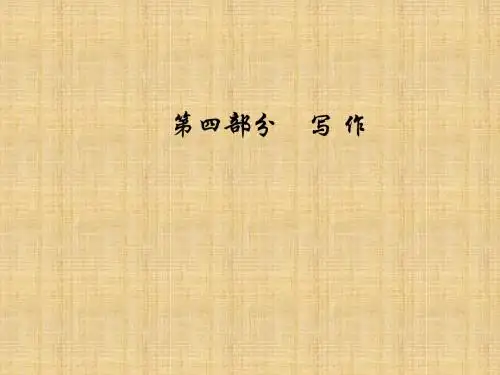 第四部分 写 作